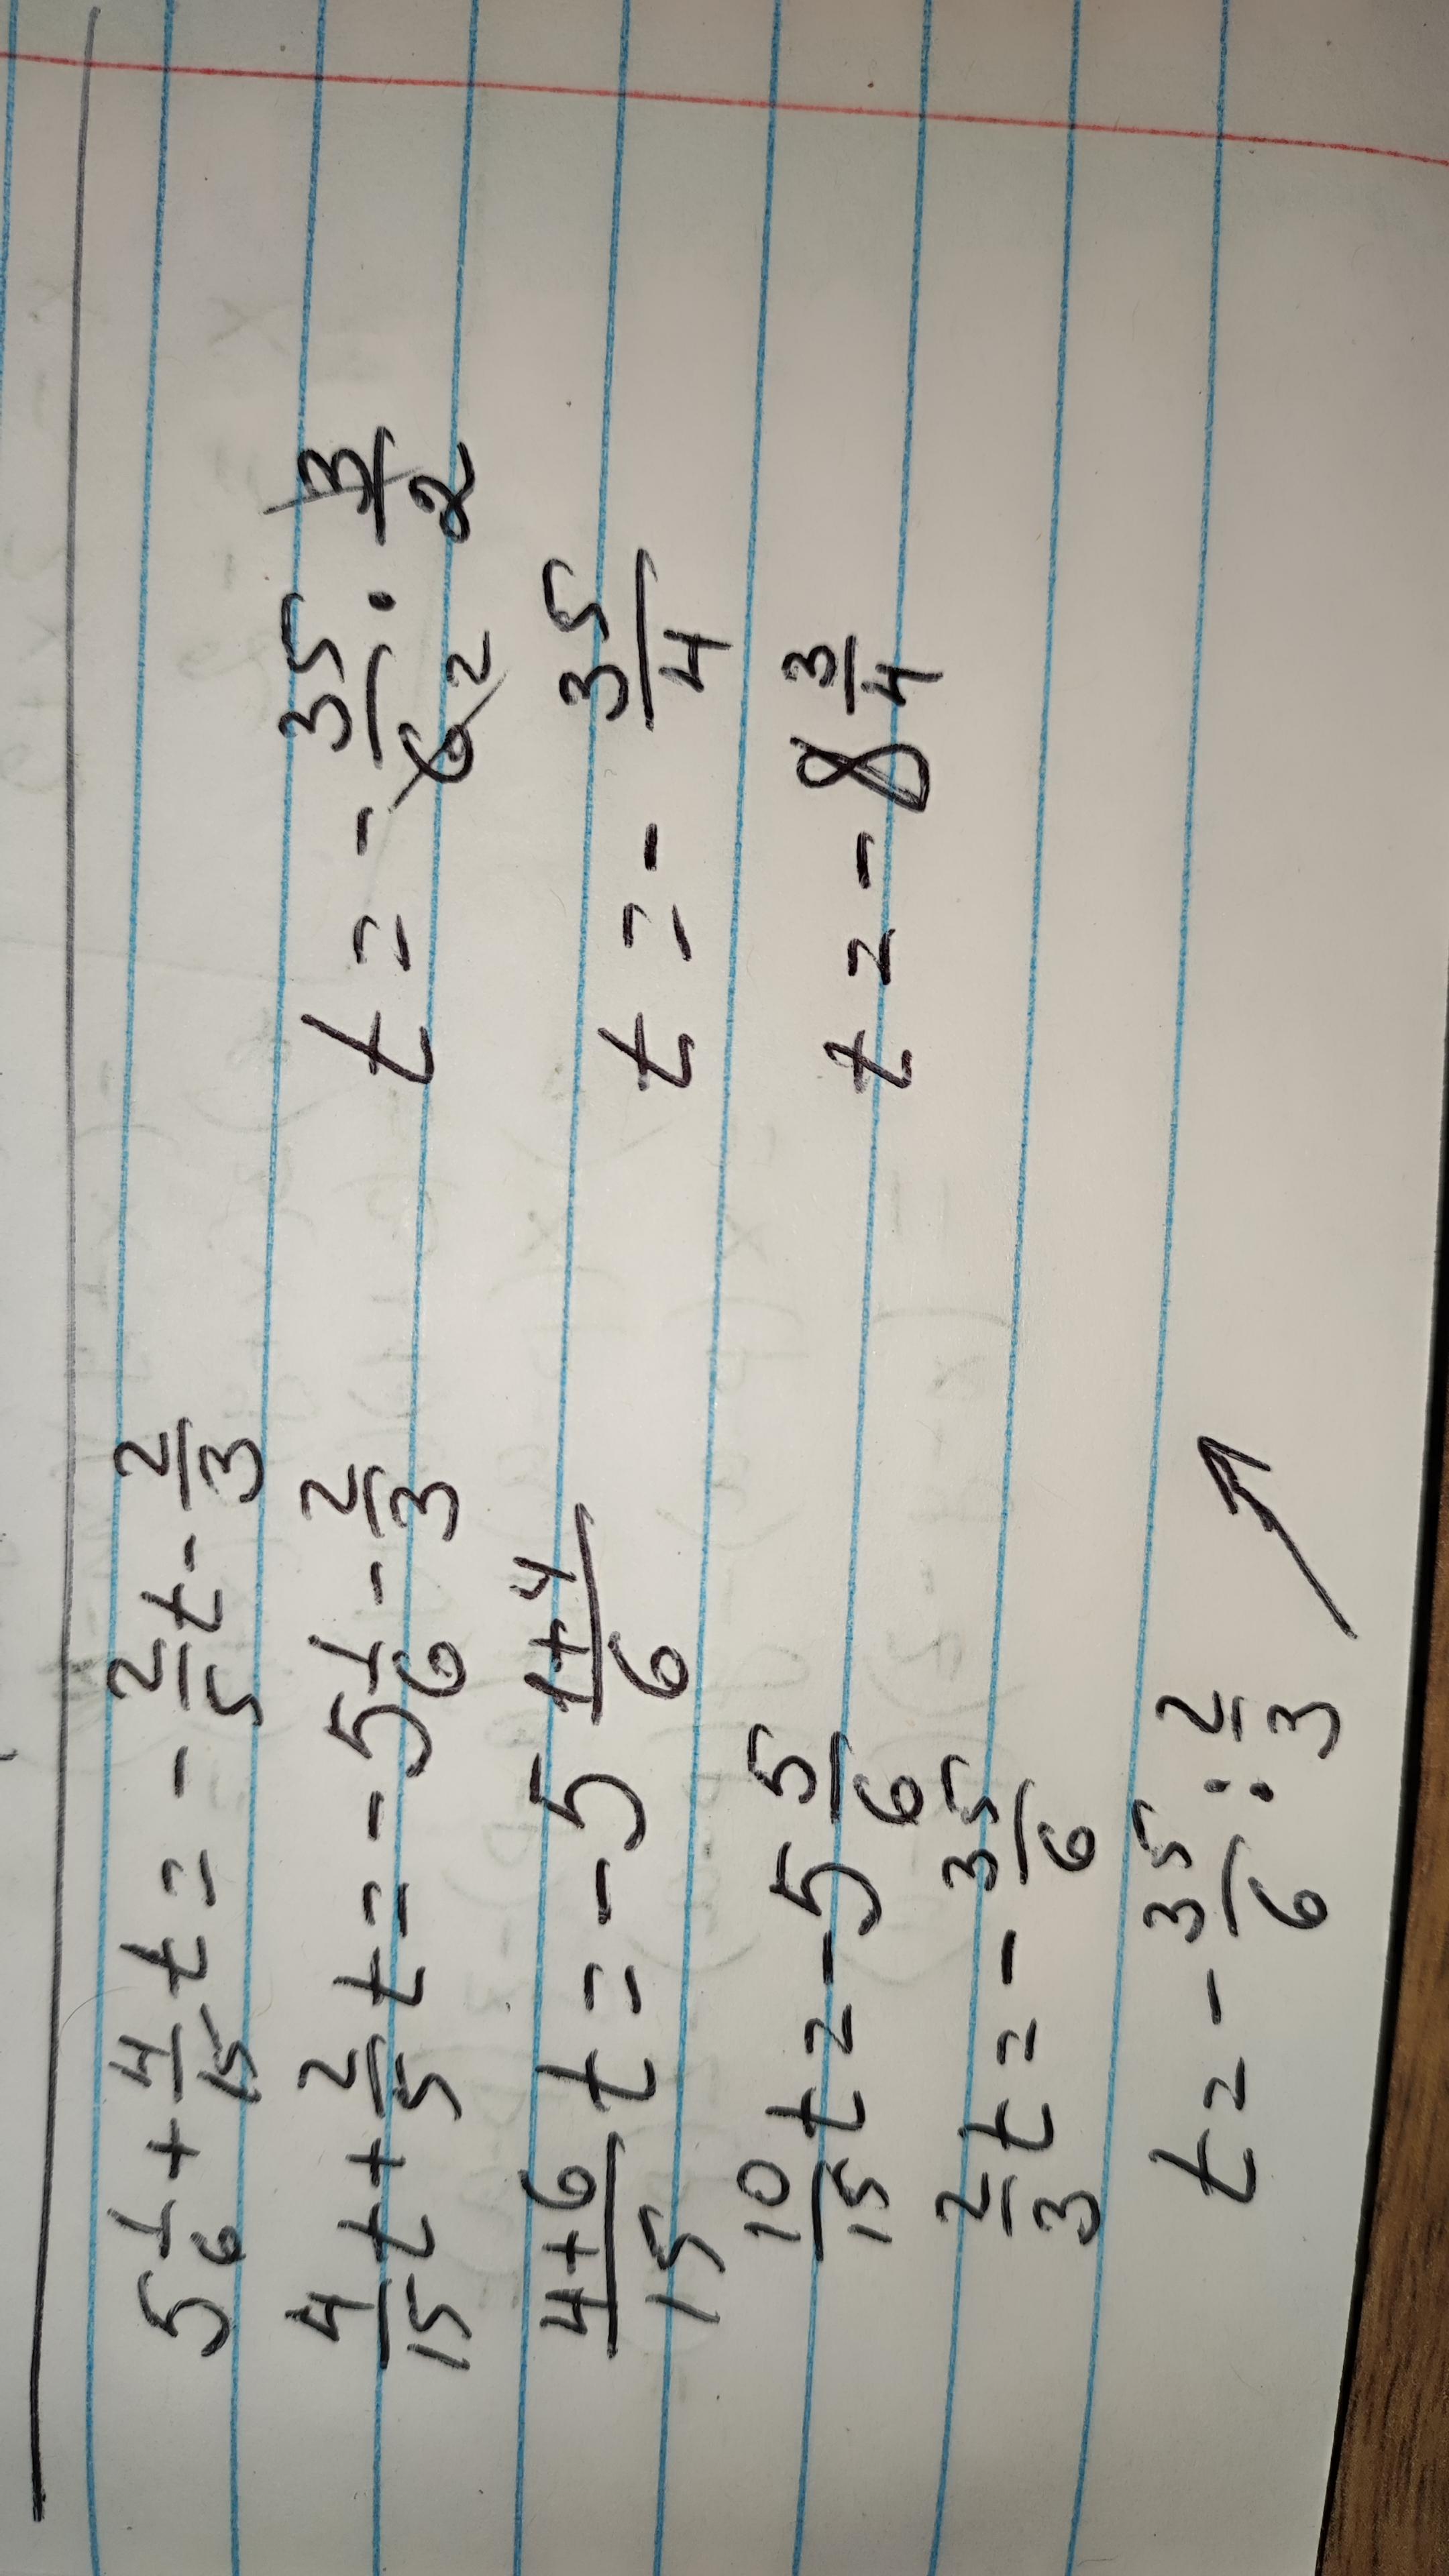 5 1/6 + 4/15 t = - 2/5 t - 2/3
4/15 t + 2/5 t = - 5 1/6 - 2/3
(4+6)/15 t = - 5 (1+4)/6
10/15 t = - 5 5/6
2/3 t = - 35/6
t = - 35/6 : 2/3
t = - 35/6 2 · 3/2
t = - 35/4
t = - 8 3/4